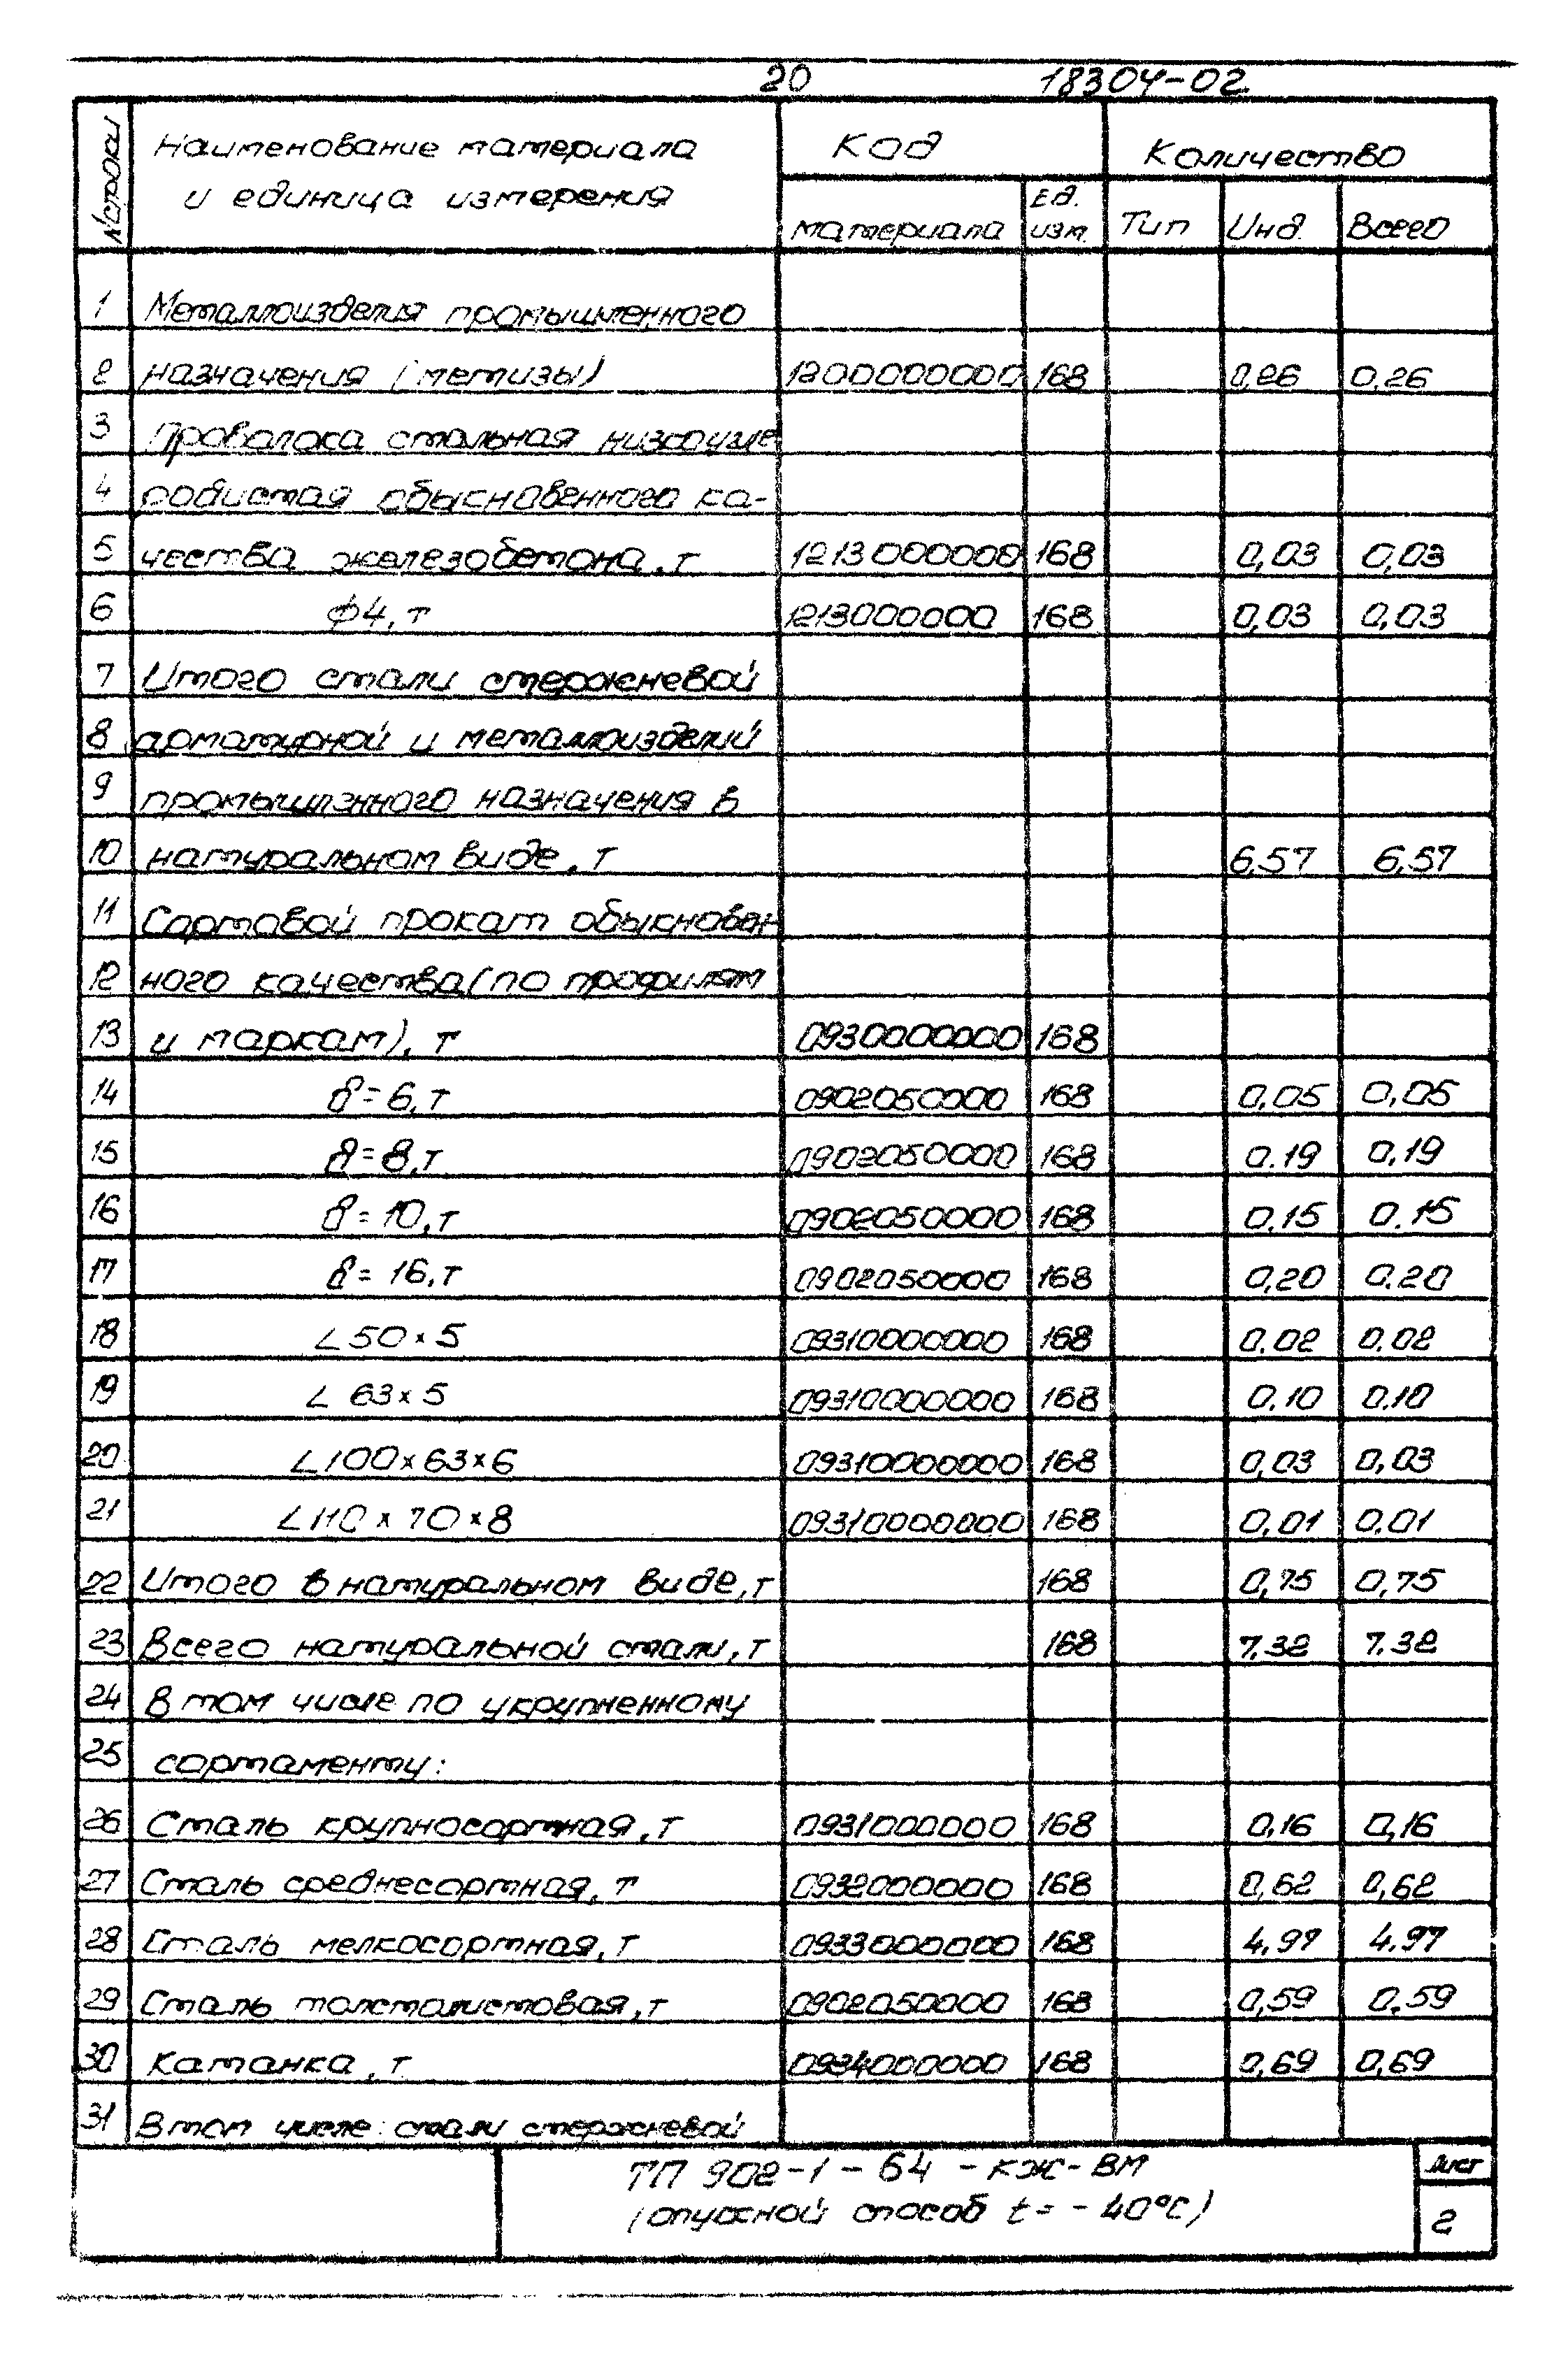 20 18304-02
N строки Наименование материала и единица измерения Код Количество
материала Ед. изм. Тип Инд. Всего
1 Металлоизделия промышленного
2 назначения (метизы) 1200000000 168 0,26 0,26
3 Проволока стальная низкоугле
4 родистая обыкновенного ка-
5 чества железобетона, т 1213000000 168 0,03 0,03
6 ф4, т 1213000000 168 0,03 0,03
7 Итого стали стержневой
8 арматурной и металлоизделий
9 промышленного назначения в
10 натуральном виде, т 6,57 6,57
11 Сортовой прокат обыкновен
12 ного качества (по профилям
13 и маркам), т 0930000000 168
14 δ=6, т 0902050000 168 0,05 0,05
15 δ=8, т 0902050000 168 0.19 0,19
16 δ=10, т 0902050000 168 0.15 0.15
17 δ=16, т 0902050000 168 0,20 0.20
18 ∠50×5 09310000000 168 0.02 0.02
19 ∠63×5 09310000000 168 0.10 0.10
20 ∠100×63×6 09310000000 168 0,03 0,03
21 ∠110×70×8 09310000000 168 0,01 0.01
22 Итого в натуральном виде, т 168 0,75 0,75
23 Всего натуральной стали, т 168 7.32 7.32
24 В том числе по укрупненному
25 сортаменту:
26 Сталь крупносортная, т 0931000000 168 0,16 0,16
27 Сталь среднесортная, т 0932000000 168 0,62 0,62
28 Сталь мелкосортная, т 0933000000 168 4,97 4.97
29 Сталь толстолистовая, т 0902050000 168 0,59 0.59
30 Катанка, т 0934000000 168 0,69 0,69
31 В том числе: стали стержневой
ТП 902-1-64-КЖ-ВМ Лист
(опускной способ t=-40°С) 2